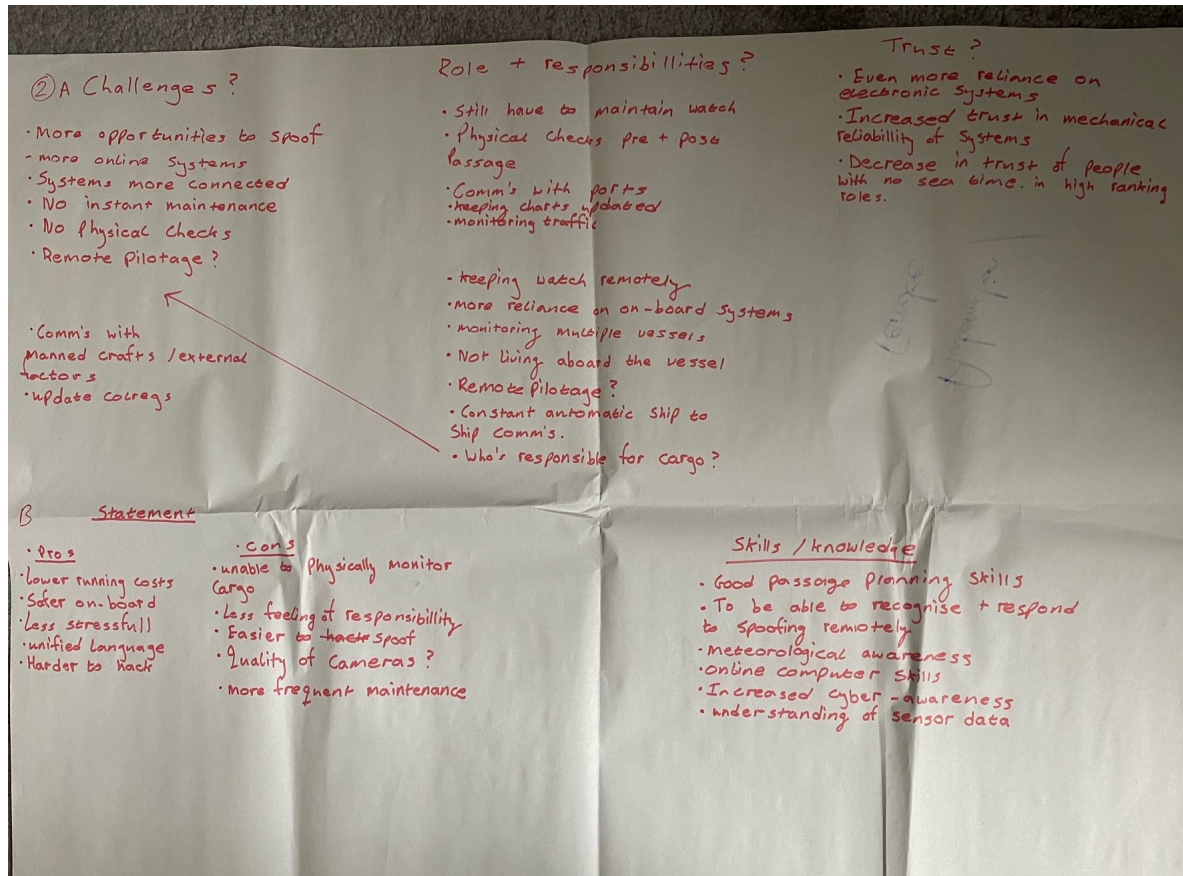 ② A Challenges?
• More opportunities to spoof
- more online systems
• Systems more connected
• No instant maintenance
• No Physical checks
• Remote pilotage?
• Comm's with
manned crafts / external
factors
• update colregs
Role + responsibillities?
• Still have to maintain watch
• Physical Checks pre + post
Passage
• Comm's with ports
• keeping charts updated
• monitoring traffic
• keeping watch remotely
• more reliance on on-board systems
• monitoring multiple vessels
• Not living aboard the vessel
• Remote pilotage?
• Constant automatic Ship to
Ship comm's.
• Who's responsible for cargo?
Trust?
• Even more reliance on
electronic systems
• Increased trust in mechanical
reliabillity of systems
• Decrease in trust of people
with no sea time. in high ranking
roles.
B Statement
• Pros
• Lower running costs
• Safer on-board
• Less stressfull
• unified language
• Harder to hack
• Cons
• unable to Physically monitor
Cargo
• Less feeling of responsibillity
• Easier to hack spoof
• Quality of cameras?
• more frequent maintenance
Skills / knowledge
• Good passage planning skills
• To be able to recognise + respond
to spoofing remotely
• meteorological awareness
• online computer skills
• Increased cyber-awareness
• understanding of sensor data